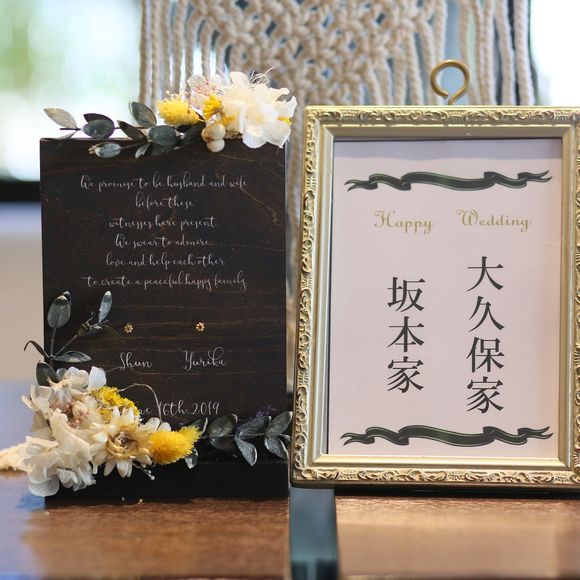 We promise to be husband and wife
before these
witnesses here present.
We swear to admire,
love and help each other
to create a peaceful happy family.
Shun Yurika
16th.2019
Happy Wedding
大久保家
坂本家